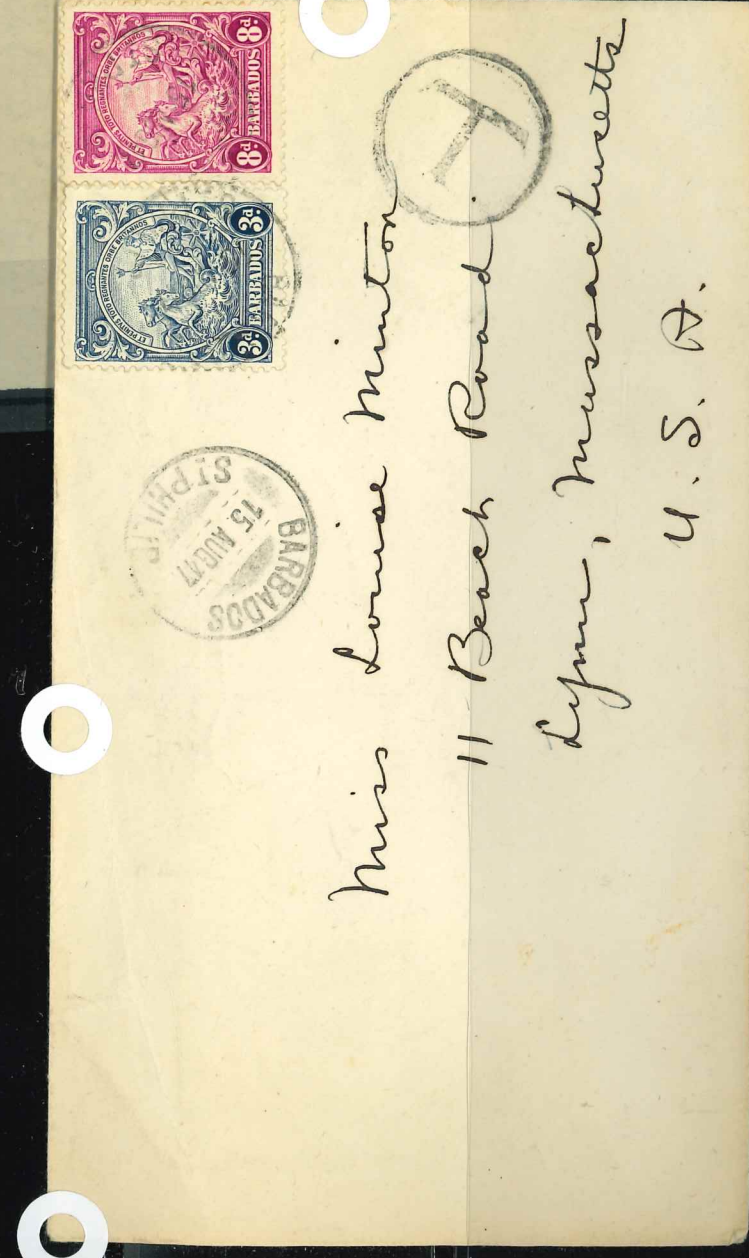 8d 8d
BARBADOS
ET PENITVS TOTO REGNANTES ORBE BRITANNOS
3d 3d
BARBADOS
ET PENITVS TOTO REGNANTES ORBE BRITANNOS
T
BARBADOS
15 AUG 47
ST PHILIP
Miss Louise Minton
11 Beach Road.
Lynn, Massachusetts
U. S. A.